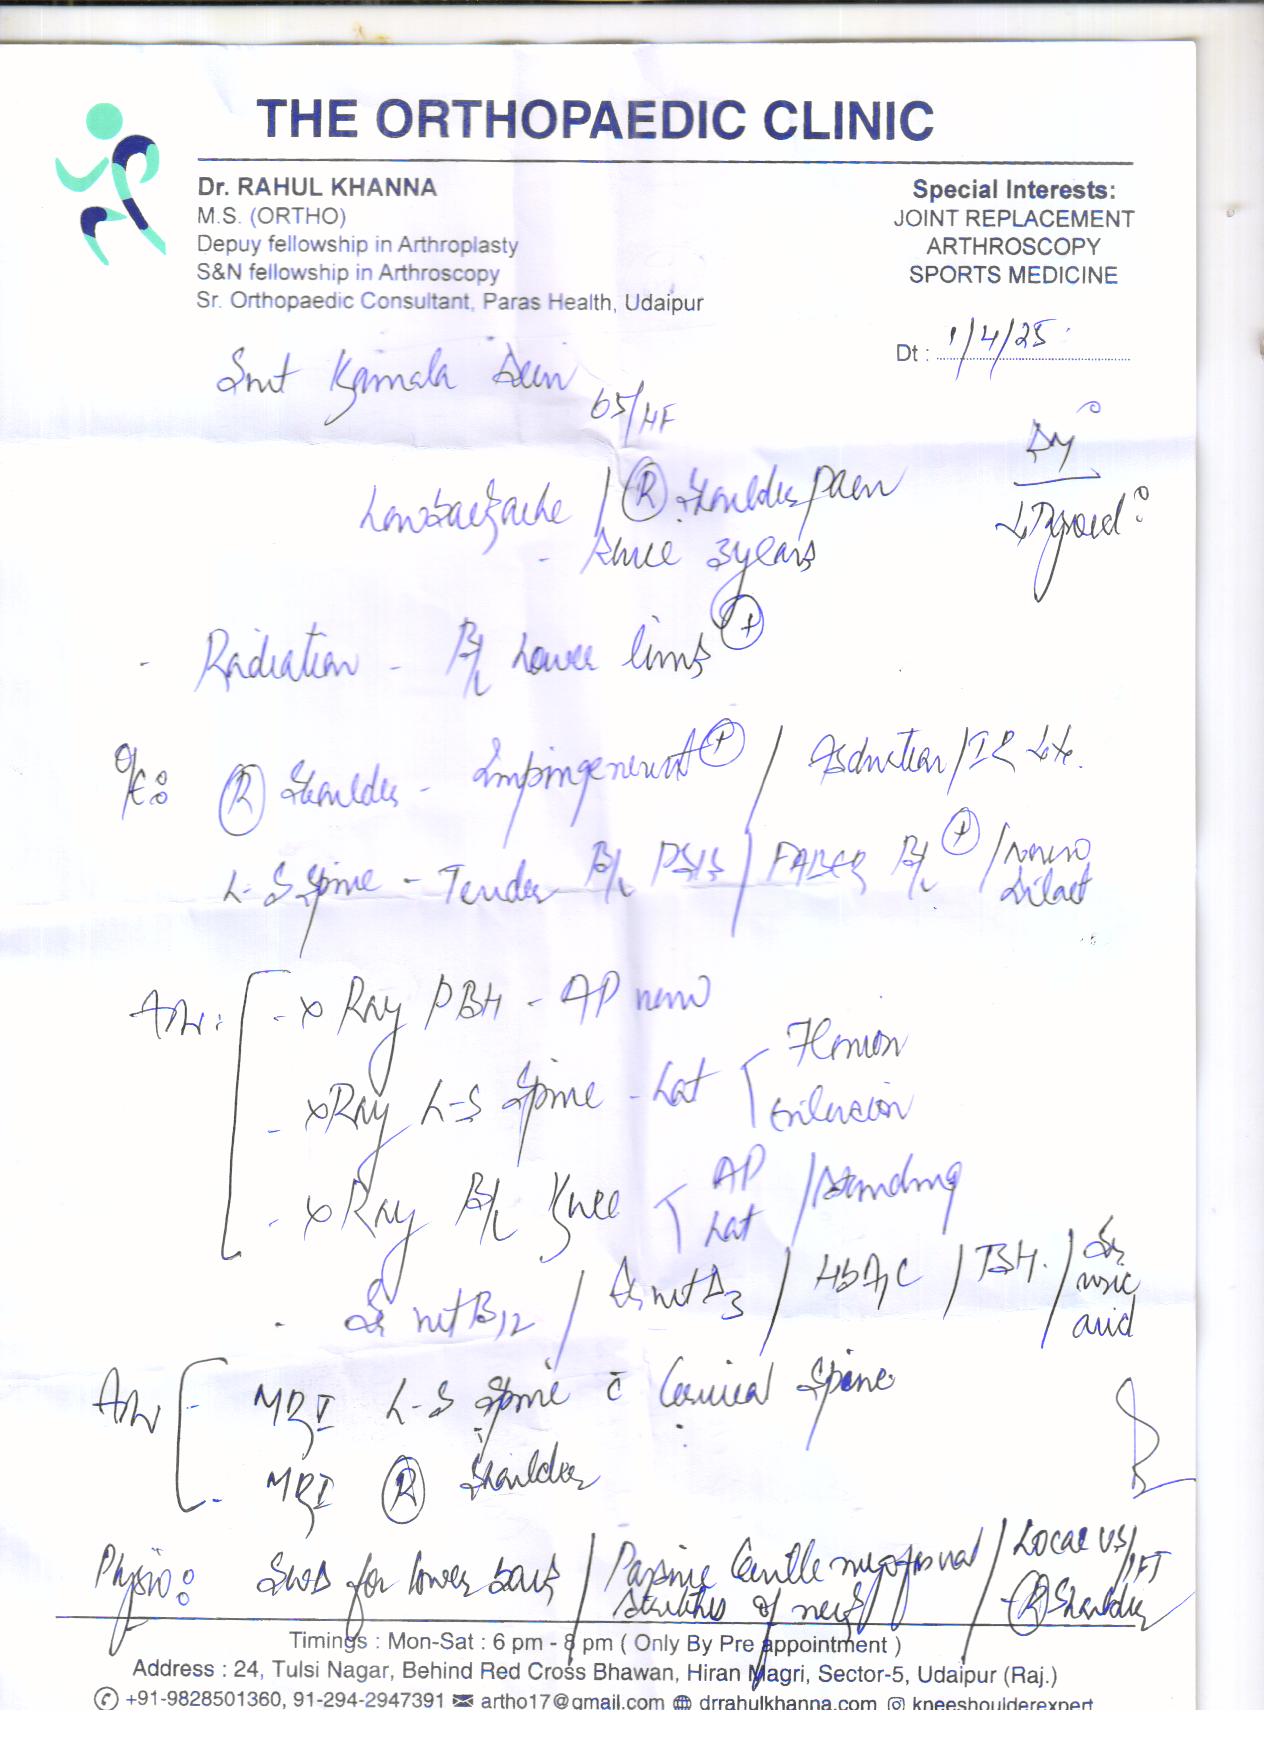 THE ORTHOPAEDIC CLINIC
Dr. RAHUL KHANNA
M.S. (ORTHO)
Depuy fellowship in Arthroplasty
S&N fellowship in Arthroscopy
Sr. Orthopaedic Consultant, Paras Health, Udaipur
Special Interests:
JOINT REPLACEMENT
ARTHROSCOPY
SPORTS MEDICINE
Dt : 1/4/25
Smt Kamala
65/
Low backache / (R) Shoulder pain
- Since 3 years
Thyroid
- Radiation - B/L Lower limb (+)
O/E: (R) Shoulder - Impingement (+) / Abduction / IR
L-S Spine - Tender B/L PSIS / FABER B/L (+) / Neuro Intact
Adv: - X Ray PBH - AP view
- X Ray L-S Spine - Lat Flexion Extension
- X Ray B/L Knee AP Lat / Standing
- Sr vit B12 / Sr vit D3 / HbA1C / TSH / Sr uric acid
Adv - MRI L-S Spine c̄ Cervical Spine
- MRI (R) Shoulder
Physio: SWD for lower back / Passive Gentle myofascial stretches of neck / Local US/IFT (R) Shoulder
Timings : Mon-Sat : 6 pm - 8 pm ( Only By Pre appointment )
Address : 24, Tulsi Nagar, Behind Red Cross Bhawan, Hiran Magri, Sector-5, Udaipur (Raj.)
+91-9828501360, 91-294-2947391 artho17@gmail.com drrahulkhanna.com kneeshoulderexpert